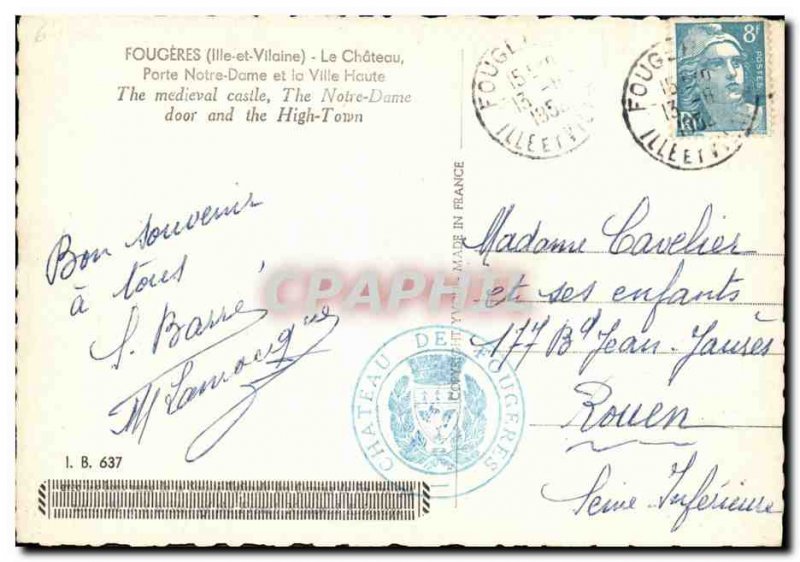 FOUGÈRES (Ille-et-Vilaine) - Le Château,
Porte Notre-Dame et la Ville Haute
The medieval castle, The Notre-Dame
door and the High-Town
Bon souvenir
à tous
S. Barré
M Lamocq
I. B. 637
COPYRIGHT YVON MADE IN FRANCE
CPAPHIL
CHATEAU DE FOUGERES
FOUGE
15
13
195
ILLE ET V
8F
POSTES
FOUG
13
195
ILLE ET V
Madame Cavelier
et ses enfants
177 Bd Jean-Jaurès
Rouen
Seine Inférieure